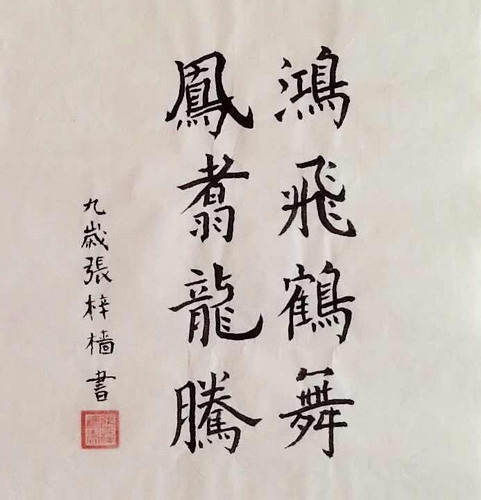 鴻飛鶴舞
鳳翥龍騰
九歲張梓樯書